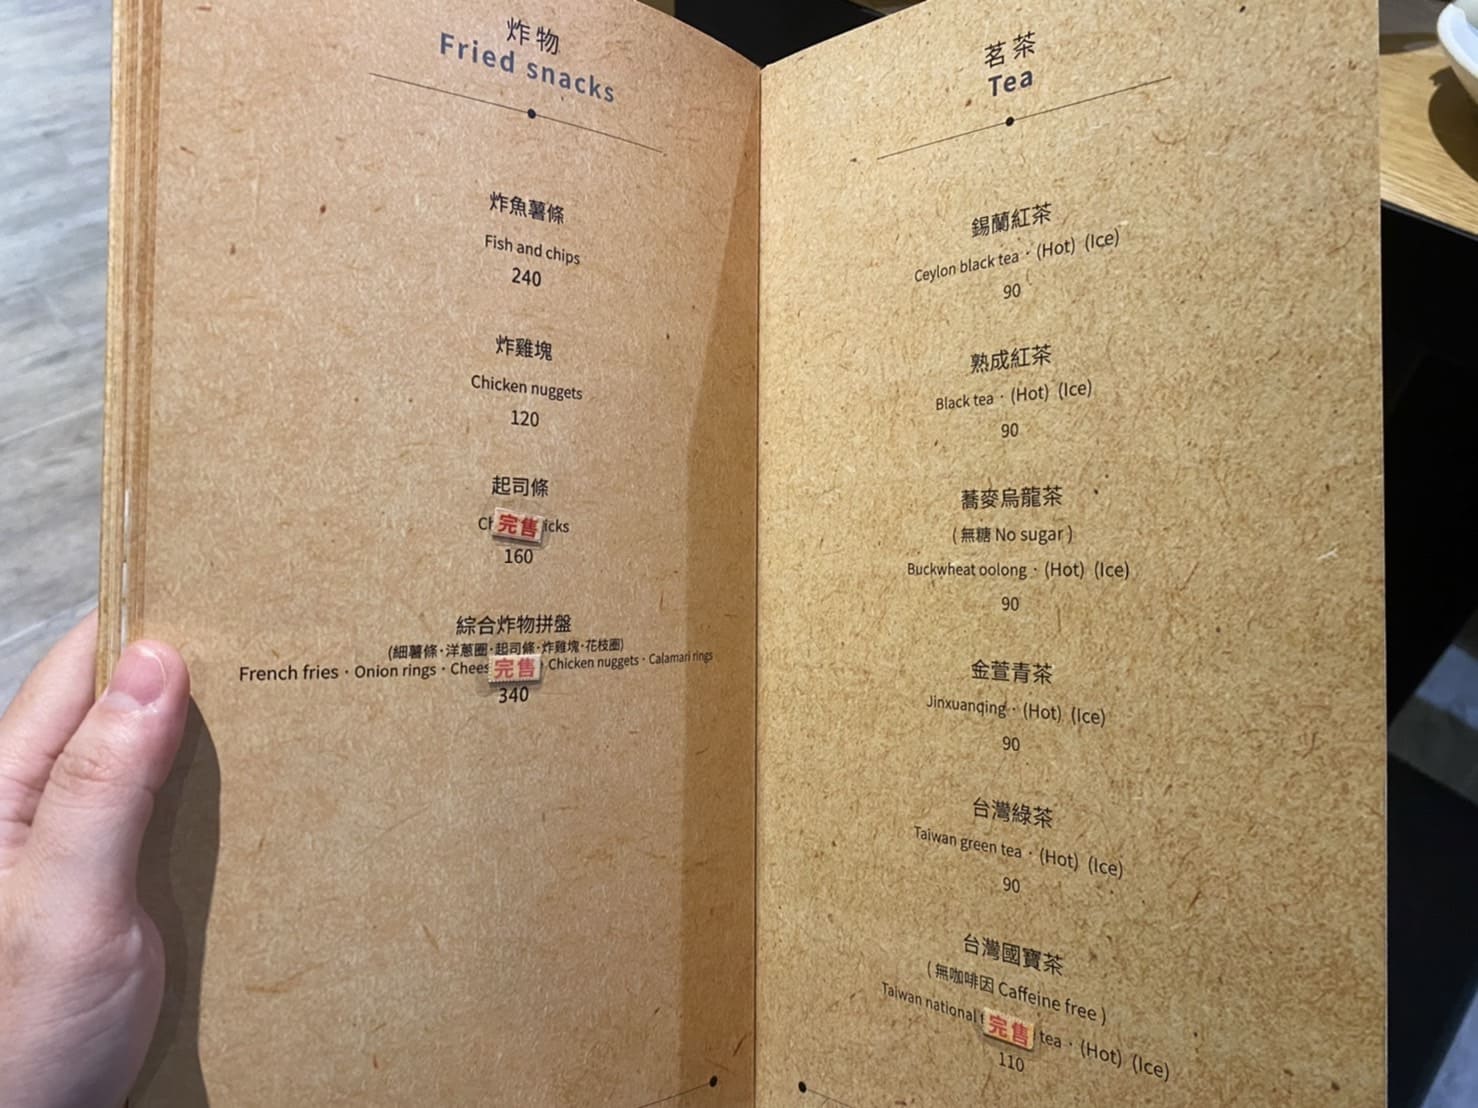 炸物
Fried snacks
炸魚薯條
Fish and chips
240
炸雞塊
Chicken nuggets
120
起司條
完售
160
綜合炸物拼盤
(細薯條·洋蔥圈·起司條·炸雞塊·花枝圈)
French fries · Onion rings · 完售 Chicken nuggets · Calamari rings
340
茗茶
Tea
錫蘭紅茶
Ceylon black tea · (Hot) (Ice)
90
熟成紅茶
Black tea · (Hot) (Ice)
90
蕎麥烏龍茶
(無糖 No sugar)
Buckwheat oolong · (Hot) (Ice)
90
金萱青茶
Jinxuanqing · (Hot) (Ice)
90
台灣綠茶
Taiwan green tea · (Hot) (Ice)
90
台灣國寶茶
(無咖啡因 Caffeine free)
Taiwan national 完售 tea · (Hot) (Ice)
110